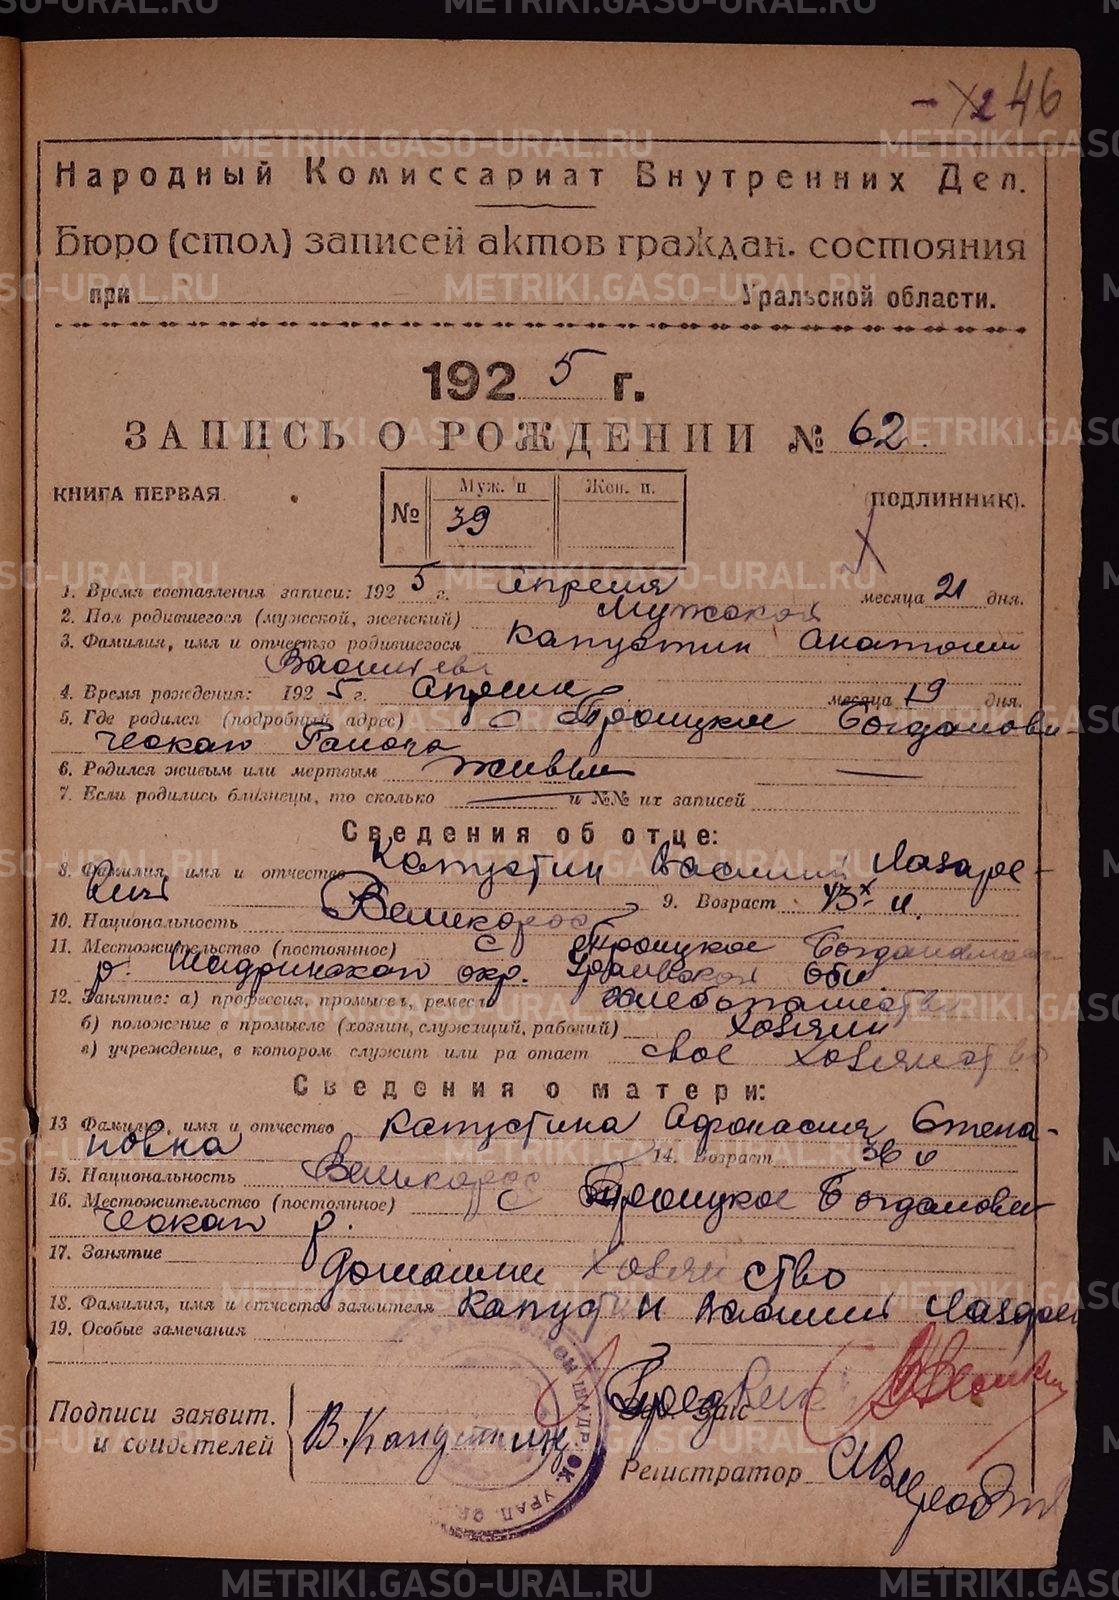 46
Народный Комиссариат Внутренних Дел.
Бюро (стол) записей актов граждан. состояния
при Уральской области.
1925 г.
ЗАПИСЬ О РОЖДЕНИИ № 62
КНИГА ПЕРВАЯ. (ПОДЛИННИК).
№ Муж. п Жен. п.
39
1. Время составления записи: 1925 г. Апреля месяца 21 дня.
2. Пол родившегося (мужской, женский) Мужской
3. Фамилия, имя и отчество родившегося Капустин Анатолий
Васильев
4. Время рождения: 1925 г. Апреля месяца 19 дня.
5. Где родился (подробный адрес) С Троицкое Богданови-
ческаго Района
6. Родился живым или мертвым живым
7. Если родились близнецы, то сколько и №№ их записей
Сведения об отце:
8. Фамилия, имя и отчество Капустин Василий Лазаре-
вич 9. Возраст 43 л.
10. Национальность Великорос
11. Местожительство (постоянное) с Троицкое Богданович
р. Шадринскаго окр. Уральской Обл
12. Занятие: а) профессия, промысел, ремесло хлебопашество
б) положение в промысле (хозяин, служащий, рабочий) Хозяин
в) учреждение, в котором служит или работает свое хозяйство
Сведения о матери:
13 Фамилия, имя и отчество Капустина Афонасия Степа-
новна 14. Возраст 36 л
15. Национальность Великорос
16. Местожительство (постоянное) С Троицкое Богданови-
ческаго р.
17. Занятие Домашни хозяйство
18. Фамилия, имя и отчество заявителя Капустин Василий Лазарев
19. Особые замечания
Подписи заявит. и свидетелей
В. Капустин
Зав. Загс
Регистратор
METRIKI.GASO-URAL.RU